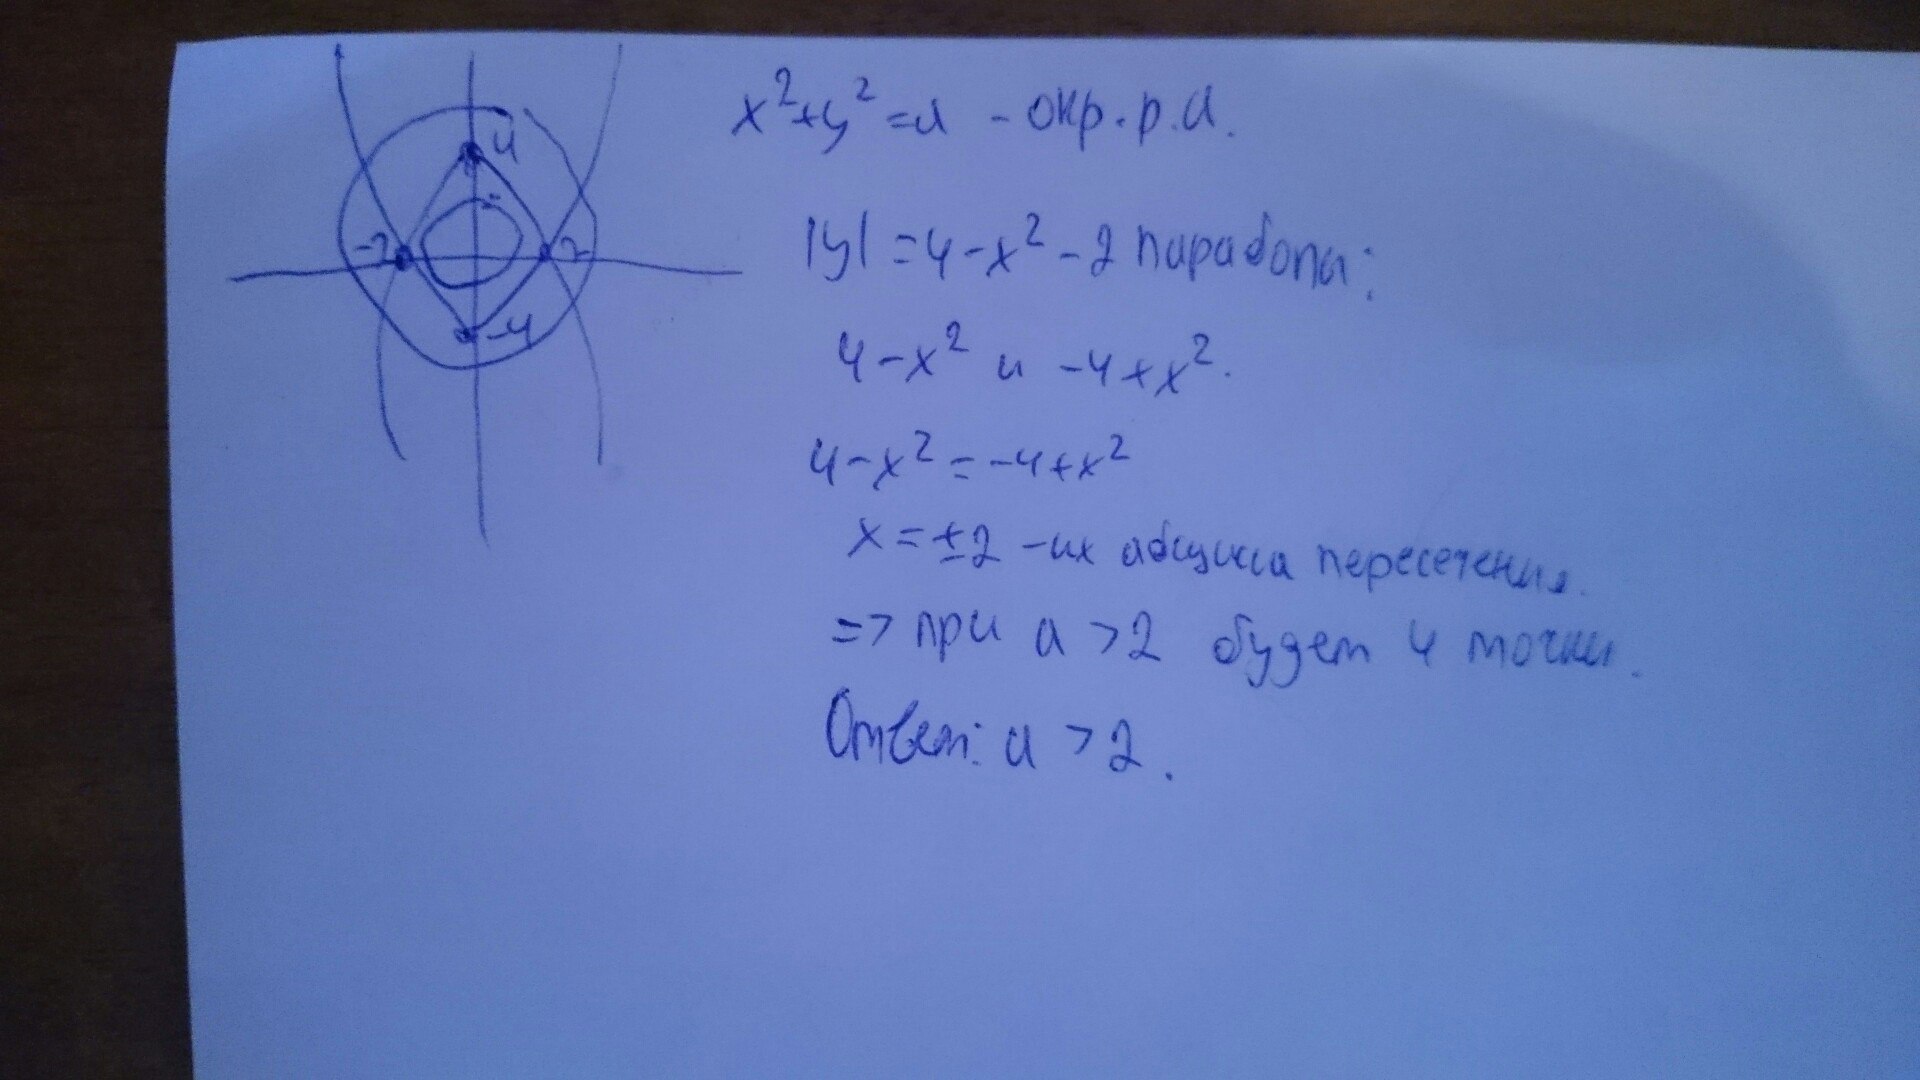 4
-2
2
-4
x²+y²=a - окр. р. a.
|y| = 4-x² - 2 параболы:
4-x² и -4+x².
4-x² = -4+x²
x = ±2 - их абсцисса пересечения.
=> при a > 2 будет 4 точки.
Ответ: a > 2.